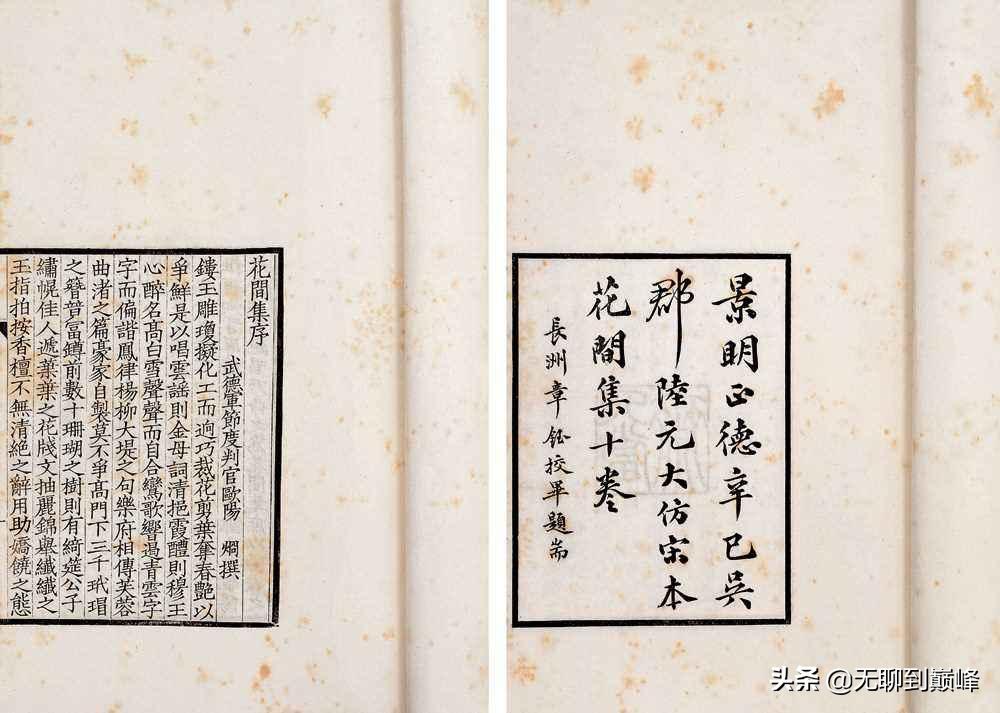 景明正德辛巳吳
郡陸元大仿宋本
花間集十卷
長洲章鈺校畢題耑
花間集序
武德軍節度判官歐陽 烱撰
鏤玉雕瓊擬化工而逈巧裁花剪葉奪春艷以
爭鮮是以唱雲謠則金母詞清挹霞醴則穆王
心醉名高白雪聲聲而自合鸞歌響遏青雲字
字而偏諧鳳律楊柳大堤之句樂府相傳芙蓉
曲渚之篇豪家自製莫不爭高門下三千玳瑁
之簪競冨罇前數十珊瑚之樹則有綺筵公子
繡幌佳人遞葉葉之花牋文抽麗錦舉纖纖之
玉指拍按香檀不無清絕之辭用助嬌饒之態
头条 @无聊到巅峰